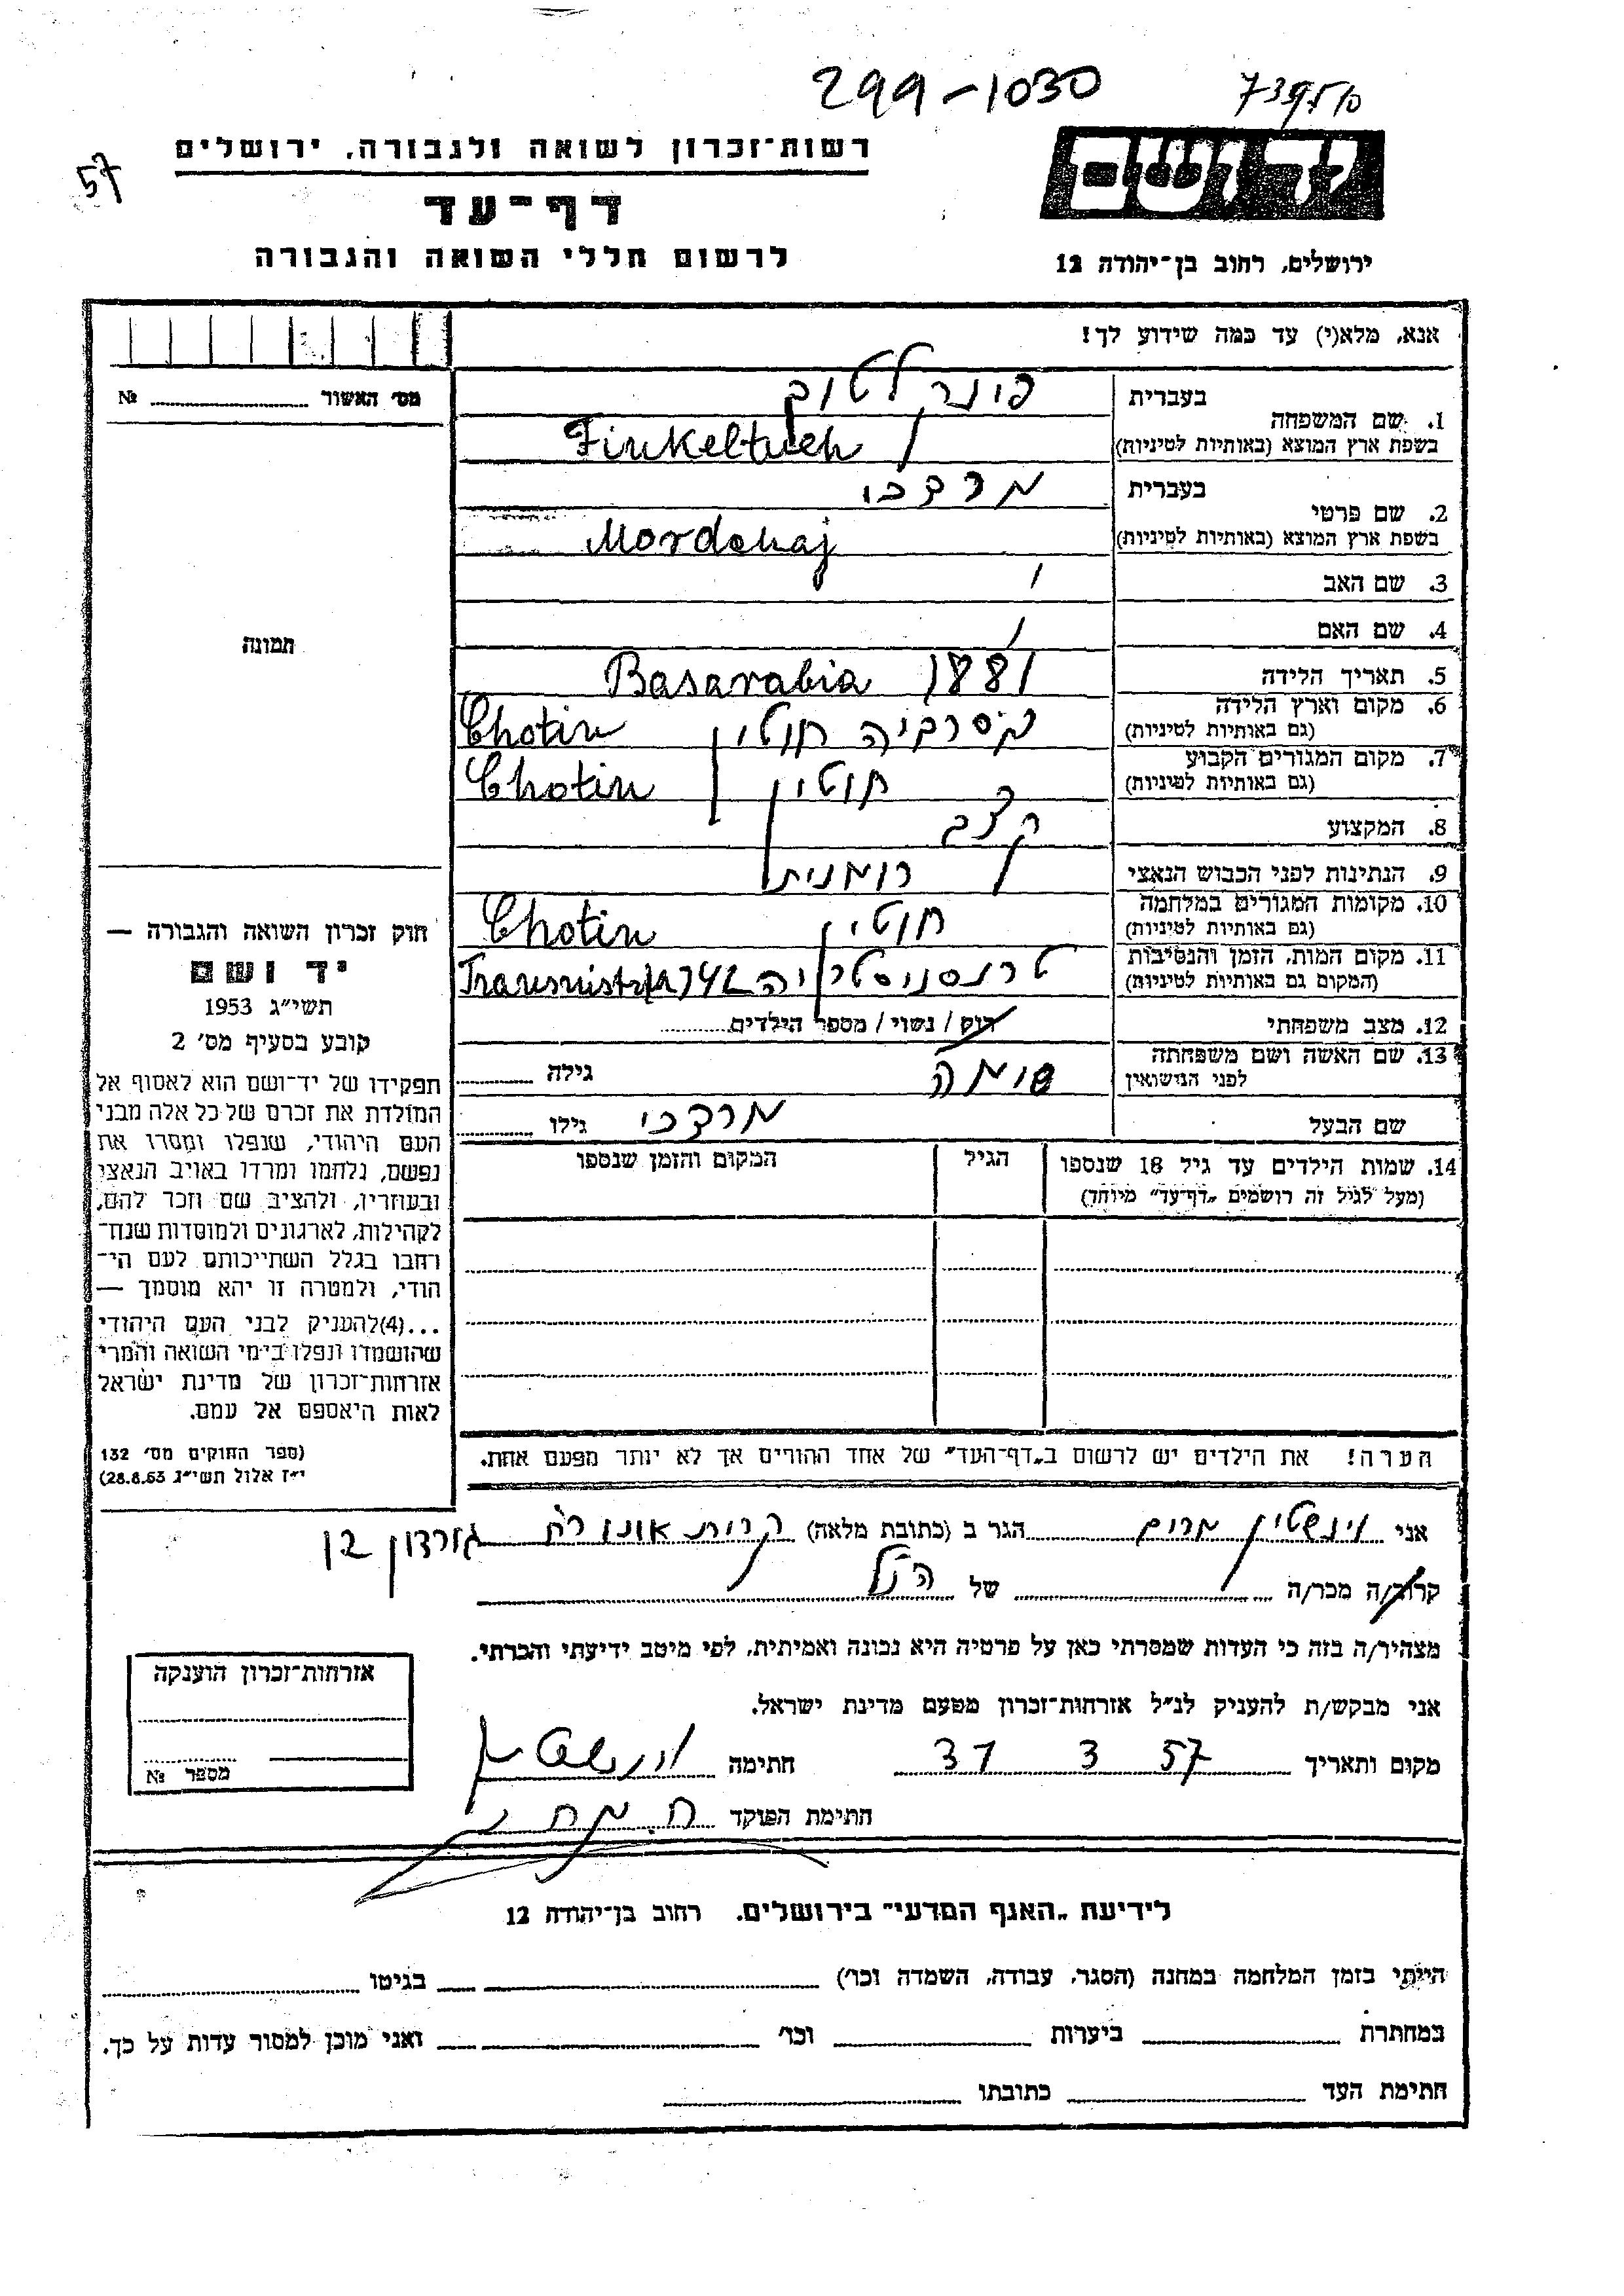 299-1030
57
רשות־זכרון לשואה ולגבורה, ירושלים
יד ושם
דף־עד
לרשום חללי השואה והגבורה
ירושלים, רחוב בן־יהודה 12
אנא, מלא(י) עד כמה שידוע לך!
מס׳ האשור № 
1. שם המשפחה בעברית
בשפת ארץ המוצא (באותיות לטיניות) Finkeltuch
2. שם פרטי בעברית מרדכי
בשפת ארץ המוצא (באותיות לטיניות) Mordchaj
3. שם האב /
4. שם האם /
תמונה
5. תאריך הלידה 1881 Basarabia
6. מקום וארץ הלידה (גם באותיות לטיניות) בסרביה חוטין Chotin
7. מקום המגורים הקבוע (גם באותיות לטיניות) חוטין Chotin
8. המקצוע קצב
9. הנתינות לפני הכבוש הנאצי רומנית
10. מקומות המגורים במלחמה (גם באותיות לטיניות) חוטין Chotin
11. מקום המות, הזמן והנסיבות (המקום גם באותיות לטיניות) טרנסניסטריה
12. מצב משפחתי רוק / נשוי / מספר הילדים
13. שם האשה ושם משפחתה לפני הנישואין גילה
שם הבעל מרדכי גילו
14. שמות הילדים עד גיל 18 שנספו הגיל המקום והזמן שנספו
(מעל לגיל זה רושמים „דף־עד״ מיוחד)
הערה! את הילדים יש לרשום ב„דף־העד״ של אחד ההורים אך לא יותר מפעם אחת.
חוק זכרון השואה והגבורה —
יד ושם
תשי״ג 1953
קובע בסעיף מס׳ 2
תפקידו של יד־ושם הוא לאסוף אל
המולדת את זכרם של כל אלה מבני
העם היהודי, שנפלו ומסרו את
נפשם, נלחמו ומרדו באויב הנאצי
ובעוזריו, ולהציב שם וזכר להם,
לקהילות, לארגונים ולמוסדות שנח־
רבו בגלל השתייכותם לעם הי־
הודי, ולמטרה זו יהא מוסמך —
...(4)להעניק לבני העם היהודי
שהושמדו ונפלו בימי השואה והמרי
אזרחות־זכרון של מדינת ישראל
לאות היאספם אל עמם.
(ספר החוקים מס׳ 132
י״ז אלול תשי״ג 28.8.53)
אני וינשטין מרים הגר ב (כתובת מלאה) קרית אונו רח גורדון
קרוב/ה מכר/ה של הנ״ל
מצהיר/ה בזה כי העדות שמסרתי כאן על פרטיה היא נכונה ואמיתית, לפי מיטב ידיעתי והכרתי.
אני מבקש/ת להעניק לנ״ל אזרחות־זכרון מטעם מדינת ישראל.
מקום ותאריך 31 3 57 חתימה
חתימת הפוקד
אזרחות־זכרון הוענקה
מספר №
לידיעת „האגף המדעי״ בירושלים, רחוב בן־יהודה 12
הייתי בזמן המלחמה במחנה (הסגר, עבודה, השמדה וכו׳) בגיטו
במחתרת ביערות וכו׳ ואני מוכן למסור עדות על כך.
חתימת העד כתובתו